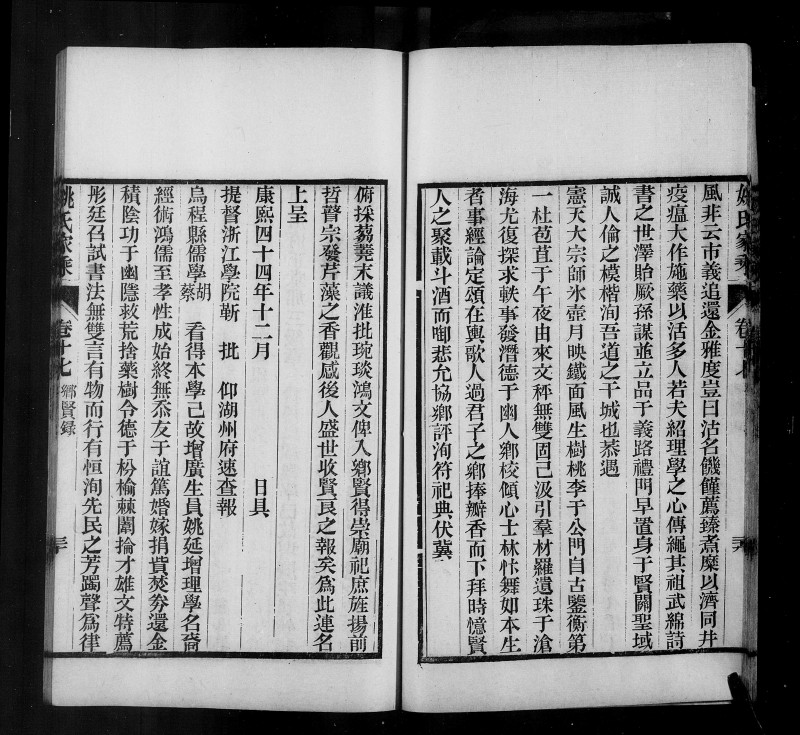 姚氏家乘 卷十七
風非云市義追還金雅度豈曰沽名饑饉薦臻煮糜以濟同井
疫瘟大作施藥以活多人若夫紹理學之心傳繩其祖武綿詩
書之世澤貽厥孫謀並立品于義路禮門早置身于賢關聖域
誠人倫之模楷洵吾道之干城也恭遇
憲天大宗師氷壺月映鐵面風生樹桃李于公門自古鑒衡第
一杜苞苴于午夜由來文秤無雙固已汲引羣材羅遺珠于滄
海尤復探求軼事發潛德于幽人鄉校傾心士林忭舞如本生
者事經論定頌在輿歌人過君子之鄉捧瓣香而下拜時憶賢
人之聚載斗酒而啣悲允協鄉評洵符祀典伏冀
俯採蒭蕘末議淮批琬琰鴻文俾入鄉賢得崇廟祀庶旌揚前
哲瞽宗發芹藻之香觀感後人盛世收賢良之報矣爲此連名
上呈
康熙四十四年十二月 日具
提督浙江學院靳 批 仰湖州府速查報
烏程縣儒學胡蔡 看得本學已故增廣生員姚延增理學名裔
經術鴻儒至孝性成始終無忝友于誼篤婚嫁捐貲焚券還金
積陰功于幽隱救荒捨藥樹令德于枌榆棘闈掄才雄文特薦
彤廷召試書法無雙言有物而行有恒洵先民之芳躅聲爲律
姚氏家乘 卷十七 鄉賢録 三六